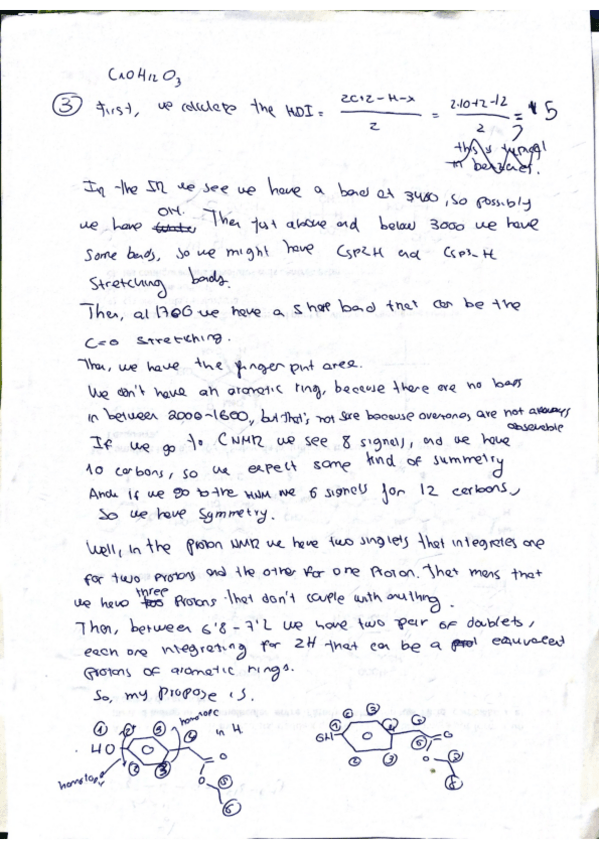 C10H12O3
③ First, we calculate the HDI = 2C+2-H-X / 2 = 2·10+2-12 / 2 = 5
this is typical
in benzenes.
In the IR we see we have a band at 3400, so possibly
we have OH. Then just above and below 3000 we have
some bands, so we might have Csp2H and Csp3-H
stretching bands.
Then, at 1700 we have a sharp band that can be the
C=O stretching.
Then, we have the finger print area.
We don't have an aromatic ring, because there are no bands
in between 2000-1600, but that's not sure because overtones are not always
observable
If we go to CNMR we see 8 signals, and we have
10 carbons, so we expect some kind of summetry
And if we go to the we 6 signals for 12 carbons,
so we have symmetry.
Well, in the proton NMR we have two singlets that integrates one
for two protons and the other for one proton. That means that
we have three protons that don't couple with anything.
Then, between 6'8-7'2 we have two pair of doublets,
each one integrating for 2H that can be a equivalent
protons of aromatic rings.
So, my propose is.
homotopic
in H.
① ② ③ ④
HO
O
O
⑤
⑥
homotopic
① ② ③ ④
OH
O
O
⑥ ⑦
⑧